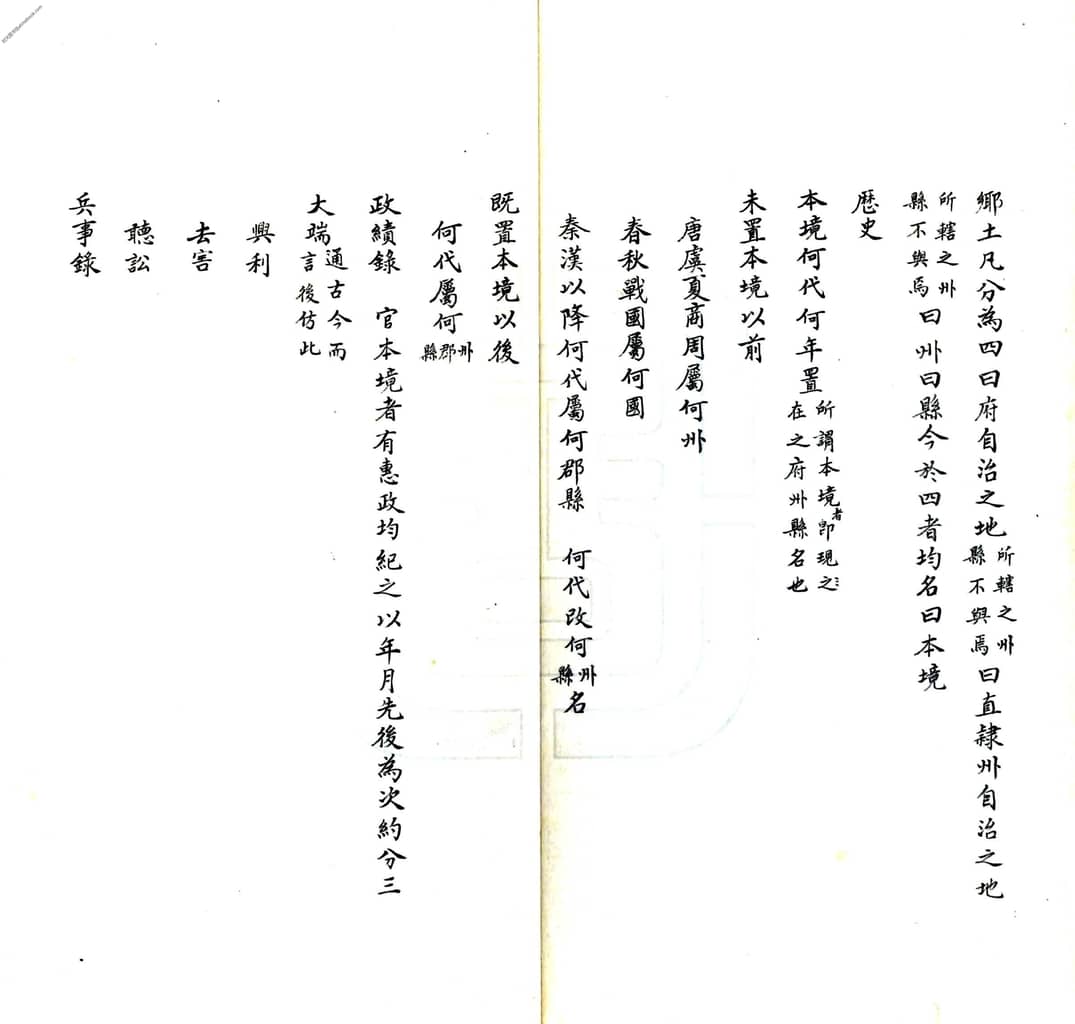 鄉土凡分為四曰府自治之地所轄之州縣不與焉曰直隸州自治之地
所轄之州縣不與焉曰州曰縣今於四者均名曰本境
歷史
本境何代何年置所謂本境者卽現之在之府州縣名也
未置本境以前
唐虞夏商周屬何州
春秋戰國屬何國
秦漢以降何代屬何郡縣 何代改何州縣名
既置本境以後
何代屬何州郡縣
政績錄 官本境者有惠政均紀之以年月先後為次約分三
大端通古今而言後仿此
興利
去害
聽訟
兵事錄